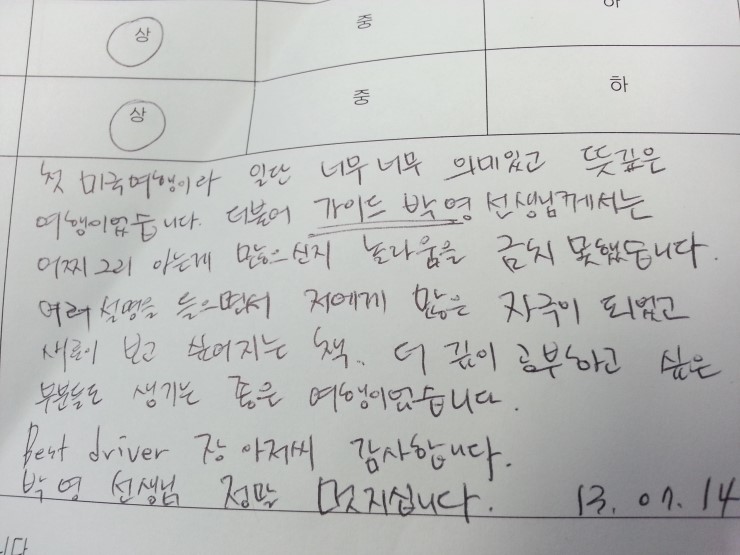 상 중 하
상 중 하
첫 미국여행이라 일단 너무너무 의미있고 뜻깊은
여행이었습니다. 더불어 가이드 박영 선생님께서는
어찌그리 아는게 많으신지 놀라움을 금치 못했습니다.
여러 설명을 들으면서 저에게 많은 자극이 되었고
새로이 보고 싶어지는 책.. 더 깊이 공부하고 싶은
부분들도 생기는 좋은 여행이었습니다.
Best driver 장 아저씨 감사합니다.
박영 선생님 정말 멋지십니다. 13. 07. 14
니다